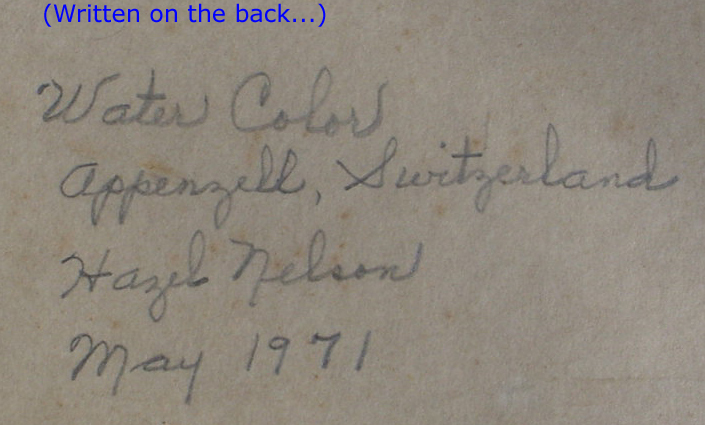 (Written on the back...)
Water Color
Appenzell, Switzerland
Hazel Nelson
May 1971